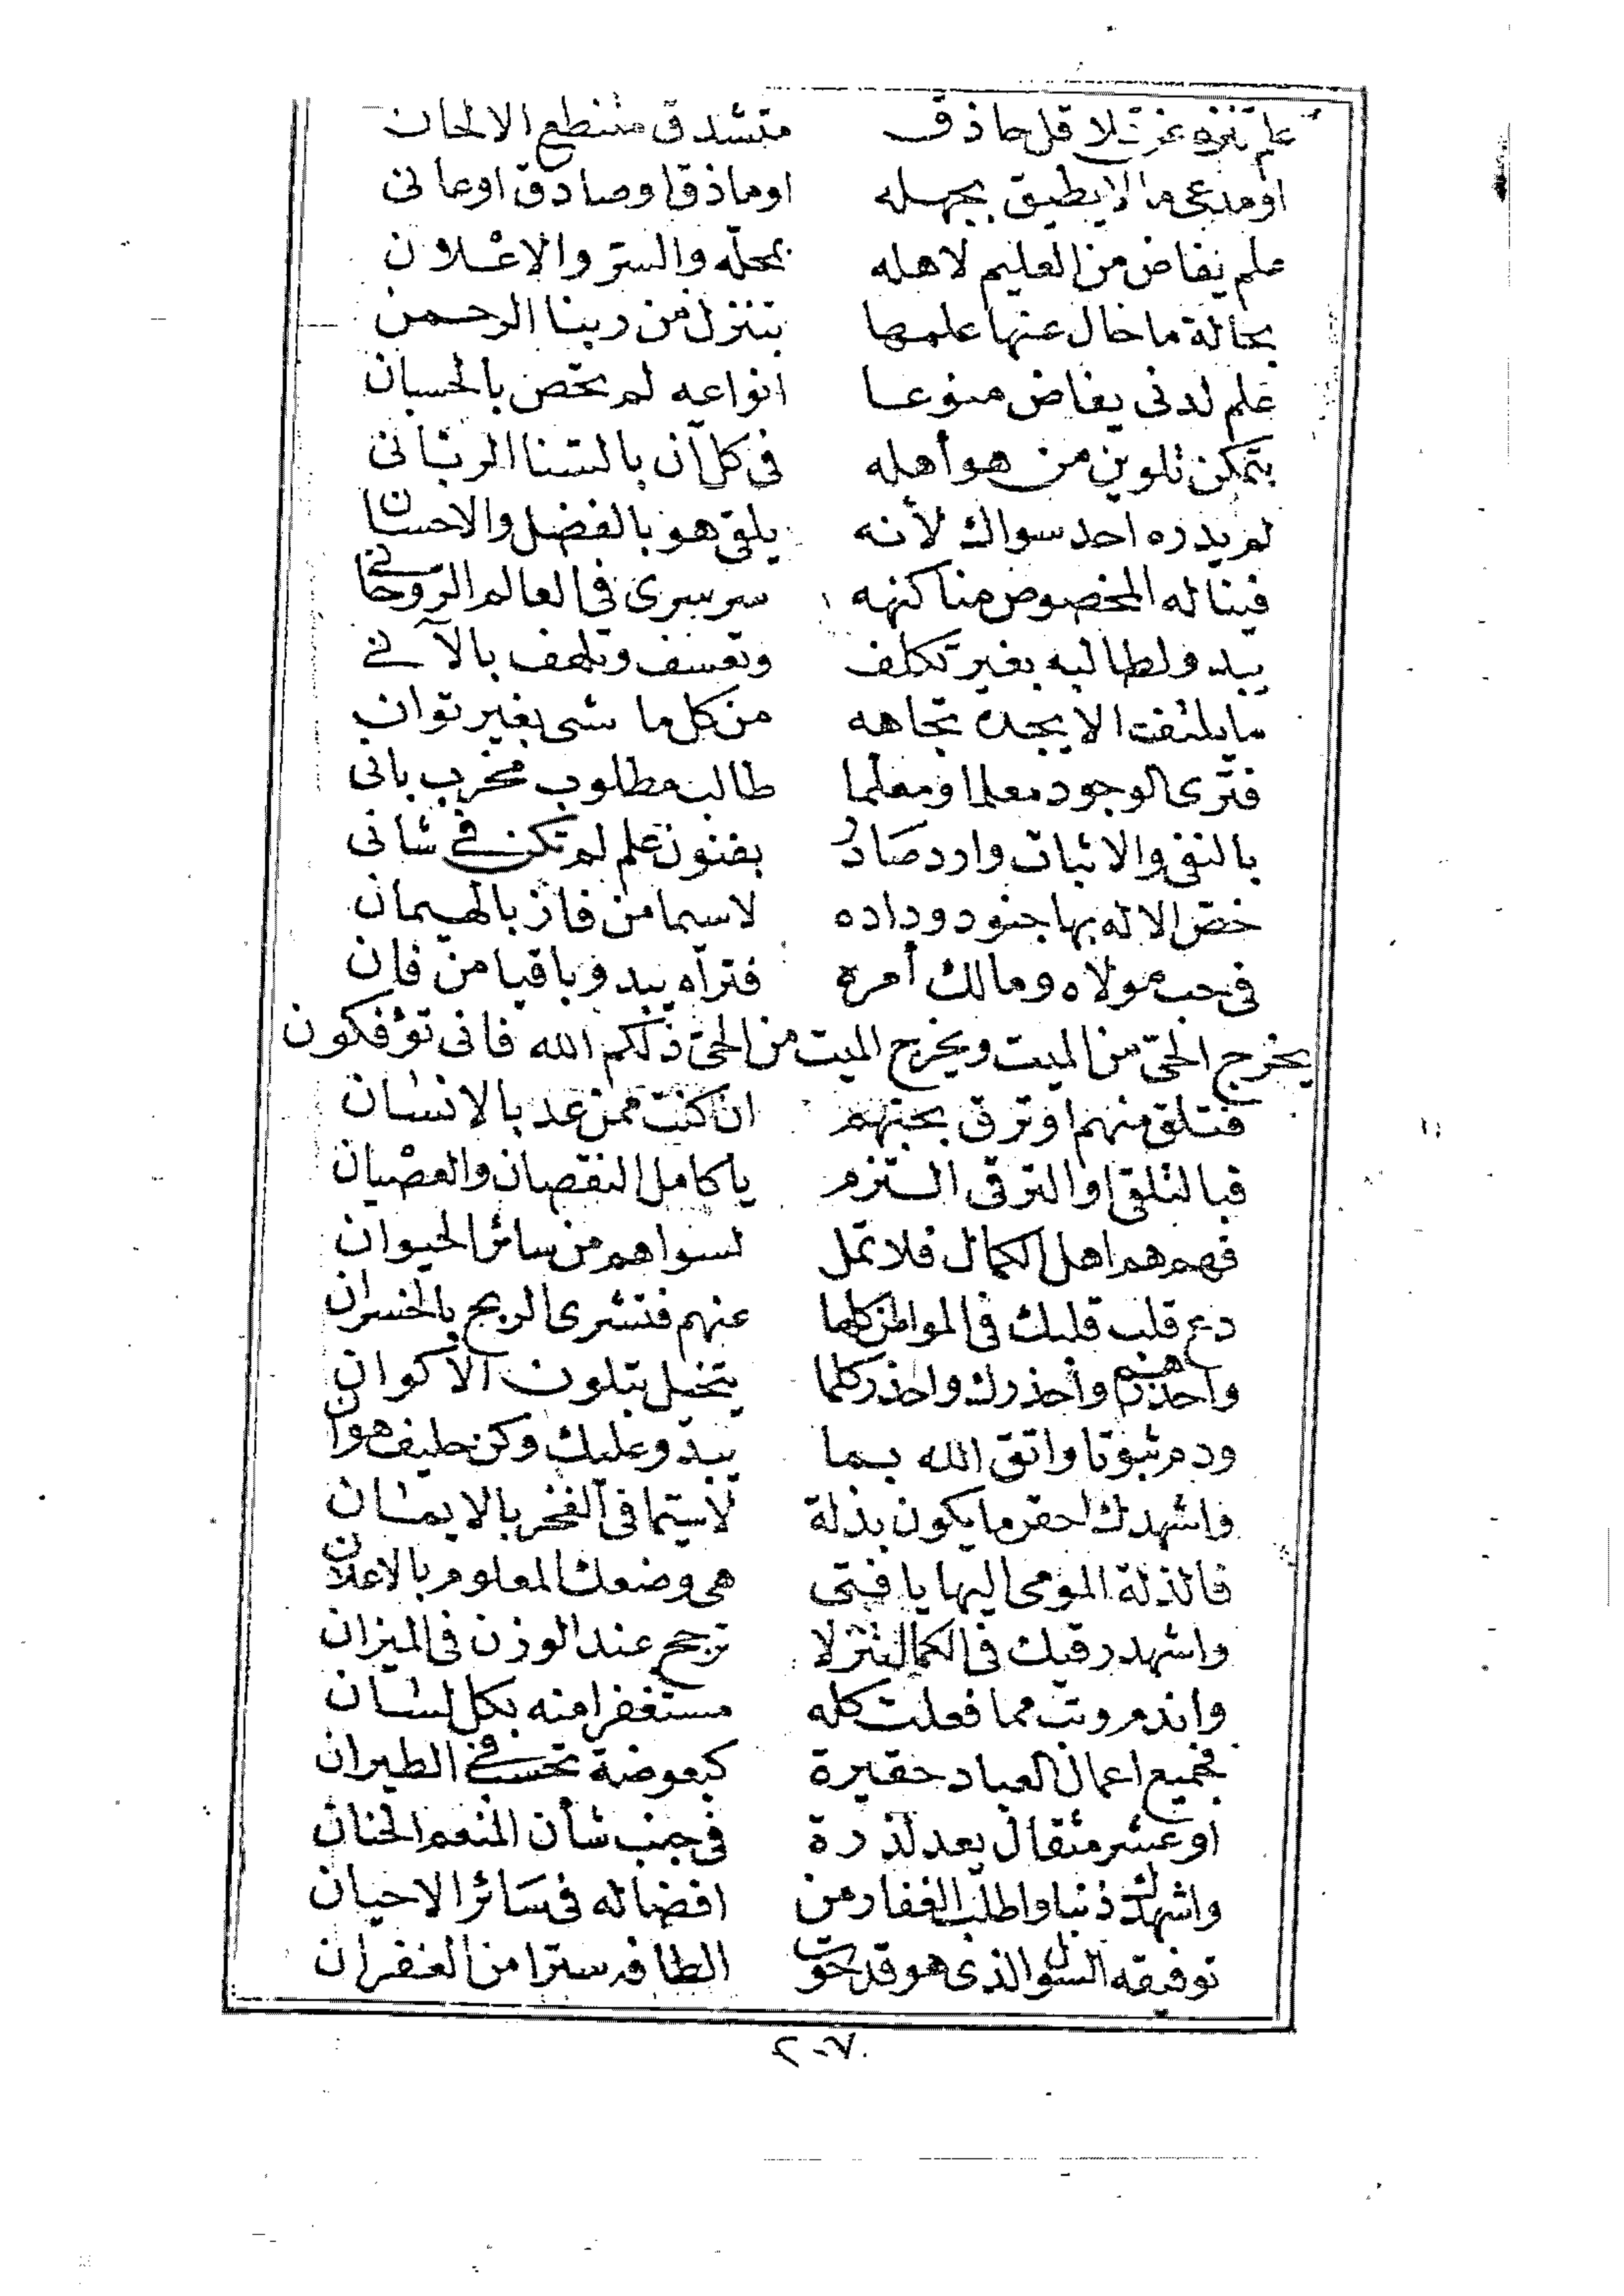 علم تنزه عن تلا قل حاذق متشدق متنطع الالحان
او مدعي ما لا يطيق بجهله او ماذقا وصادق اوعانى
علم يفاض من العليم لاهله بمحله والستر والاعلان
بحالة ما خال عنها علمها بتنزل من ربنا الرحمن
علم لدنى يفاض منوعا انواعه لم تحص بالحسبان
بتمكن تلوين من هو أهله فى كل آن بالسنا الربانى
لم يدره احد سواك لأنه يلقى هو بالفضل والاحسان
فيناله المخصوص منا كنهه سر سرى فى العالم الروحانى
يبدو لطالبه بغير تكلف وتعسف وتلهف بالآنى
ما يلتفت الا يجده تجاهه من كل ما شى بغير توان
فترى الوجود معلما ومعلما طالب مطلوب مخرب بانى
بالنفى والاثبات وارد صادر بفنون علم لم تكن فى شانى
خص الاله بها جنود وداده لاسيما من فاز بالهيمان
فى حب مولاه ومالك أمره فتراه يبدو باقيا من فان
يخرج الحى من الميت ويخرج الميت من الحى ذلكم الله فانى توفكون
فتلق منهم او ترق بحبهم ان كنت ممن عد بالانسان
فبالتلقى او الترقى التزم يا كامل النقصان والعصيان
فهم هم اهل الكمال فلا تمل لسواهم من سائر الحيوان
دع قلب قلبك فى المواطن كلها عنهم فتشرى الربح بالخسران
واحذرهم واحذرك واحذر كلما يتخيل بتلون الاكوان
ودم ثبوتا واتق الله بما يبدو عليك وكن حليف هوان
واشهدك احقر ما يكون بذلة لاسيما فى الفخر بالايمان
فالذلة المومى اليها يا فتى هى وضعك المعلوم بالاعلان
واشهد رقيك فى الكمال تنزلا ترجح عند الوزن فى الميزان
واندم وتب مما فعلت كله مستغفرا منه بكل لسان
فجميع اعمال العباد حقيرة كبعوضة تحسب فى الطيران
او عشر مثقال يعد لذرة فى جنب شأن المنعم الحنان
واشهدك ذنبا واطلب الغفار من افضاله فى سائر الاحيان
توفيقه السؤل الذى هو قد حوت الطافه سترا من الغفران
٢٠٧